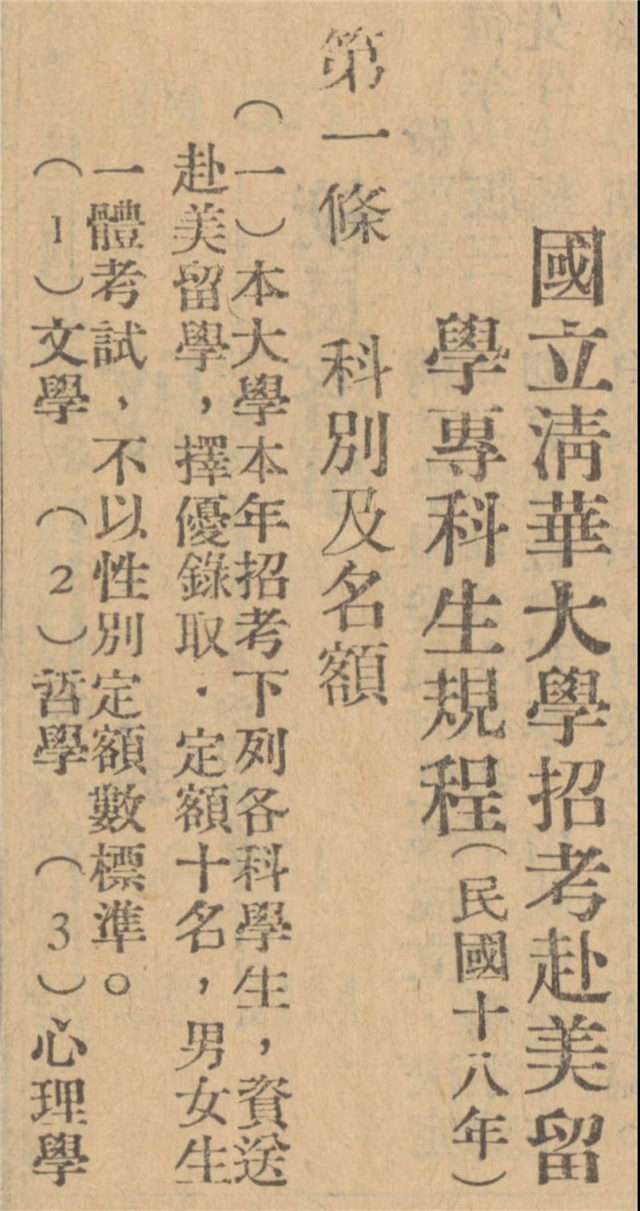 國立清華大學招考赴美留
學專科生規程（民國十八年）
第一條　科別及名額
（一）本大學本年招考下列各科學生，資送
赴美留學，擇優錄取．定額十名，男女生
一體考試，不以性別定額數標準。
（1）文學　（2）哲學　（3）心理學